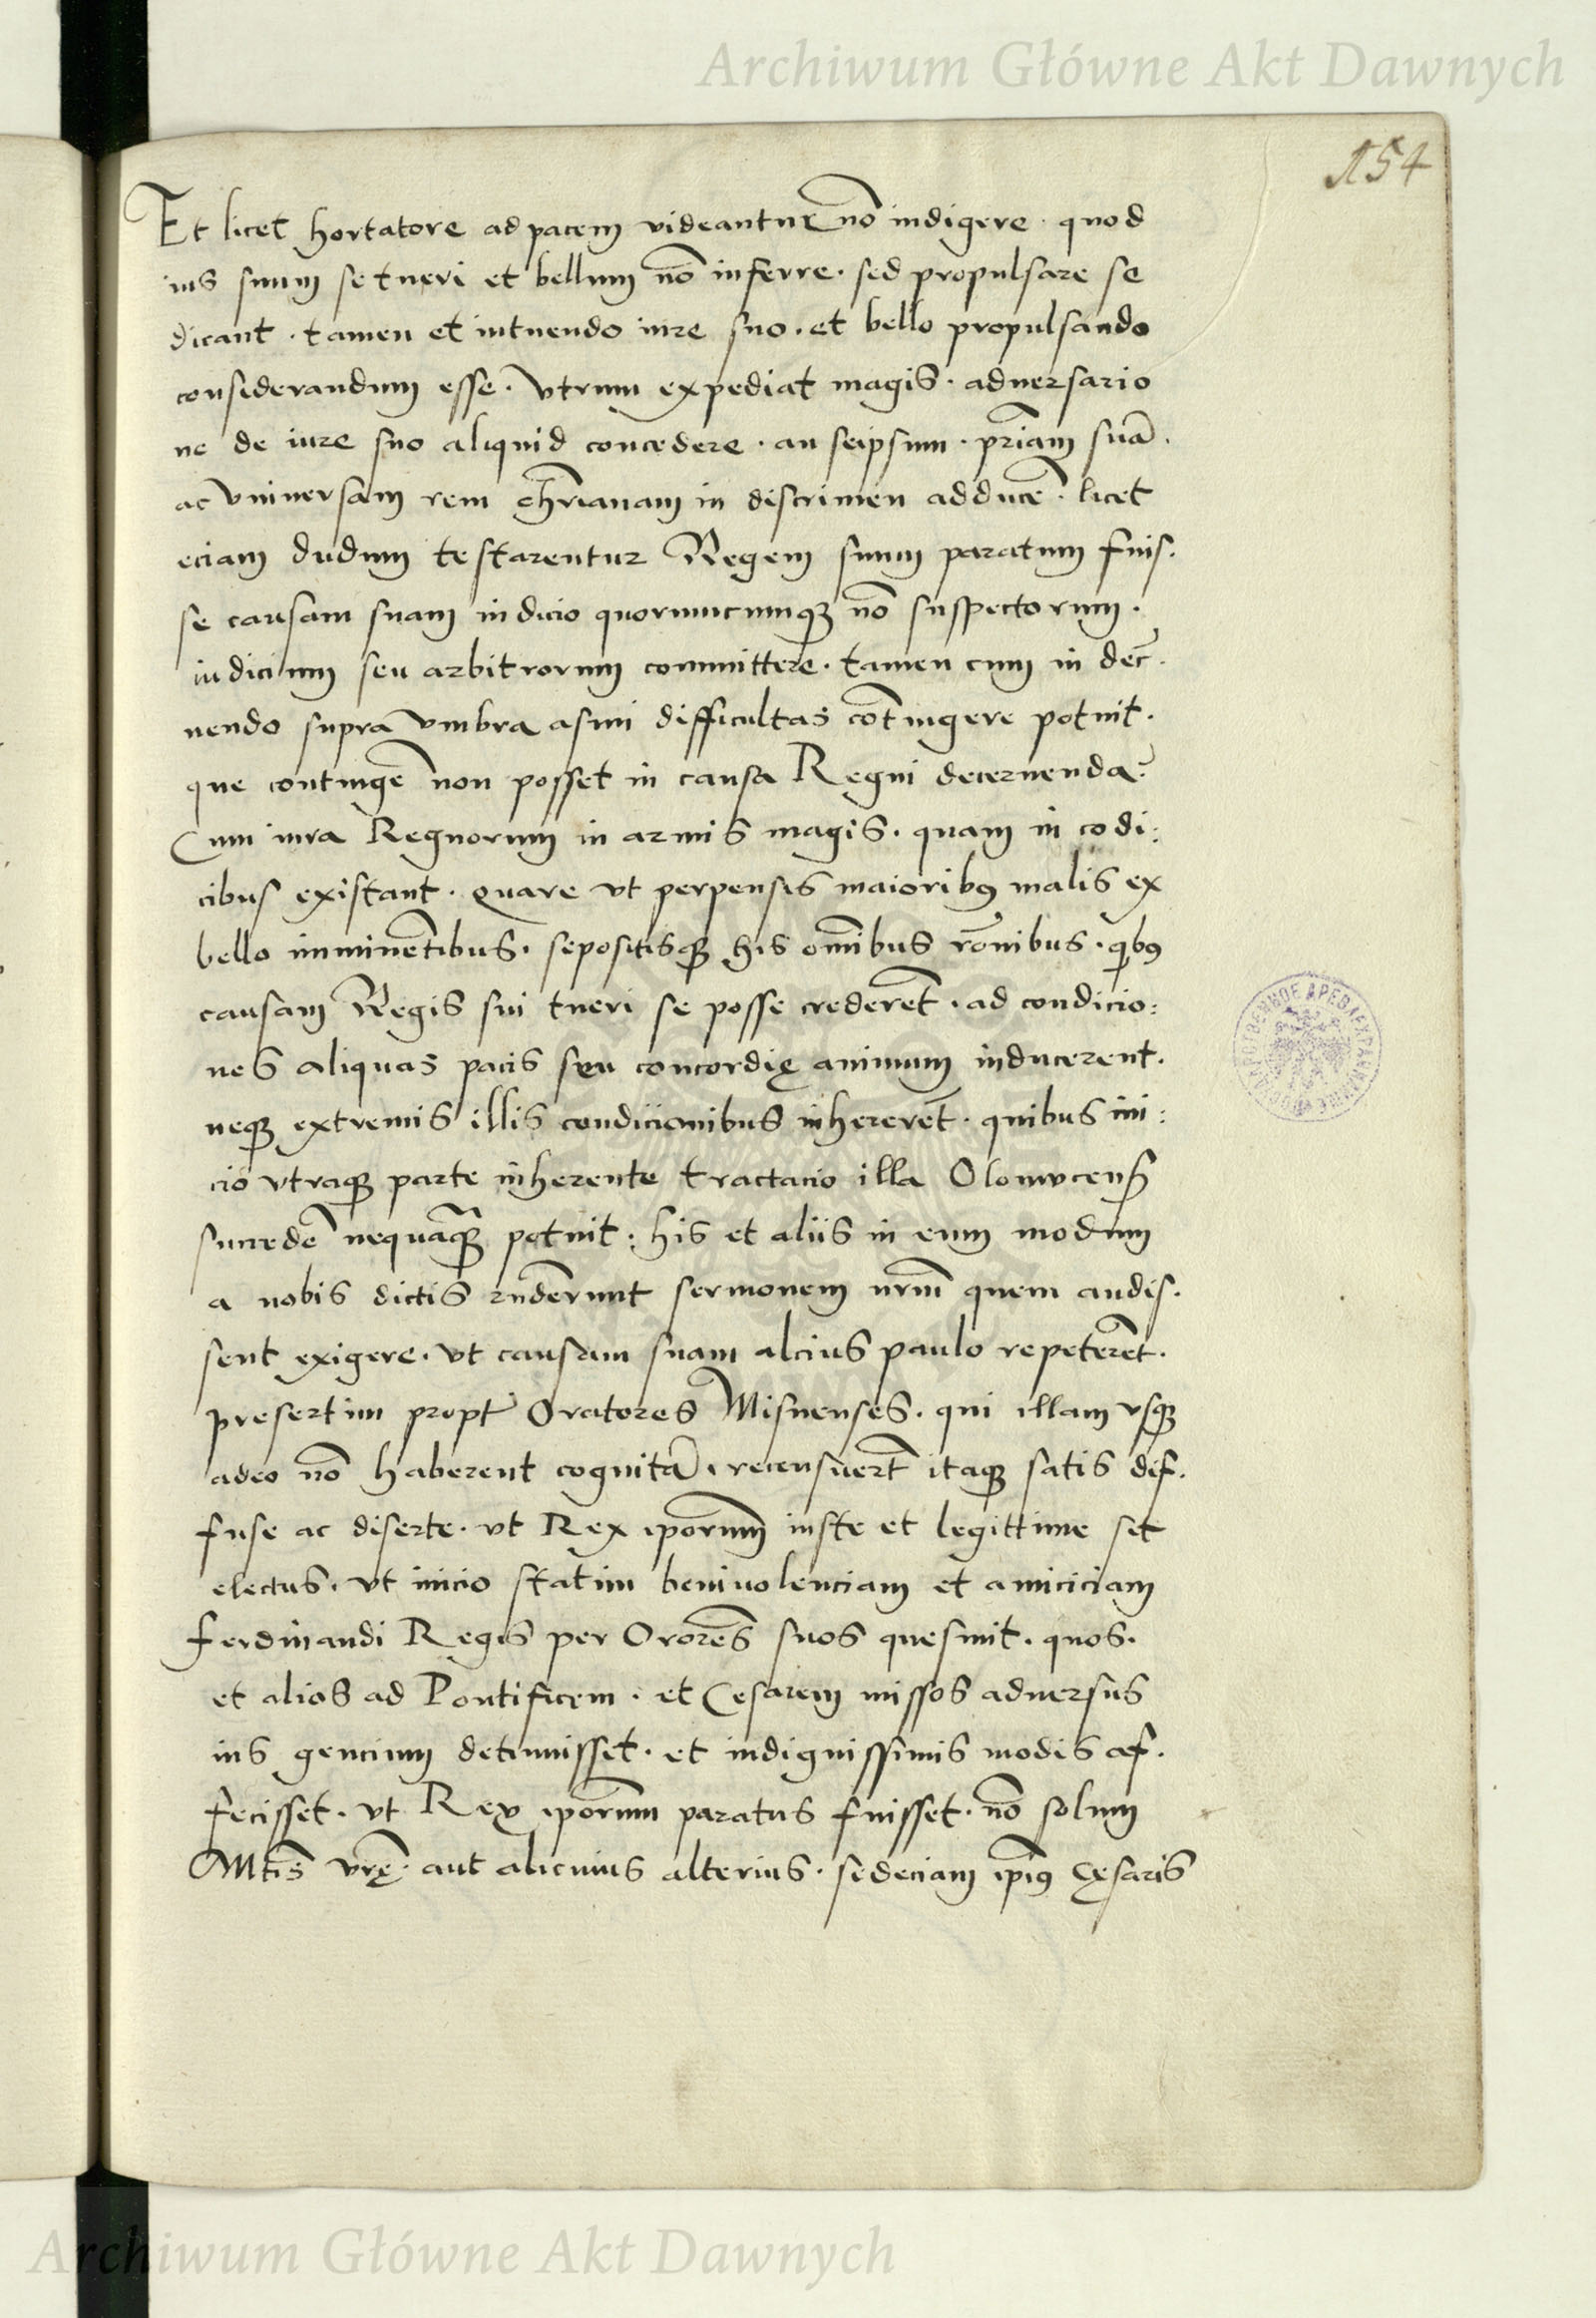 Archiwum Główne Akt Dawnych
154
Et licet hortatore ad pacem videantur nō indigere · quod
ius suum se tueri et bellum nō inferre · sed propulsare se
dicant · tamen et in tuendo iure suo · et bello propulsando
considerandum esse · vtrum expediat magis · aduersario
ne de iure suo aliquid concedere · an seipsum · pr̄iam suā ·
ac vniuersam rem chr̄ianam in discrimen adducē · licet
eciam dudum testarentur Regem suum paratum fuis·
se causam suam iudicio quorumcumqꝫ nō suspectorum ·
iudicium seu arbitrorum committere · tamen cum in dec̄·
nendo supra vmbra asini difficultas cōtingere potuit ·
que contingē non posset in causa Regni decernenda?
Cum iura Regnorum in armis magis · quam in codi:
cibus existant · Quare vt perpensis maioribꝰ malis ex
bello imminētibus · sepositisqꝫ his om̄ibus rōnibus · qibꝰ
causam Regis sui tueri se posse crederēt · ad condicio:
nes aliquas pacis seu concordię animum inducerent ·
neqꝫ extremis illis condicionibus inhererēt · quibus ini:
cio vtraqꝫ parte inherente tractacio illa Olomucens̄
succedē nequāqꝫ potuit : his et aliis in eum modum
a nobis dictis rn̄derunt sermonem nr̄m quem audis·
sent exigere · vt causam suam alcius paulo repeterēt ·
presertim propt̄ Oratores Misnenses · qui illam vsqꝫ
adeo nō haberent cognitā · recensuerūt itaqꝫ satis dif·
fuse ac diserte · vt Rex ip̄orum iuste et legittime sit
electus · vt inicio statim beniuolenciam et amiciciam
Ferdinandi Regis per Orōres suos quesiuit · quos ·
et alios ad Pontificem · et Cesarem missos aduersus
ius gencium detinuisset · et indignissimis modis af·
fecisset · vt Rex ip̄orum paratus fuisset · nō solum
Mtīs vrę̄ · aut alicuius alterius · sed eciam ip̄iꝰ Cęsaris
Archiwum Główne Akt Dawnych